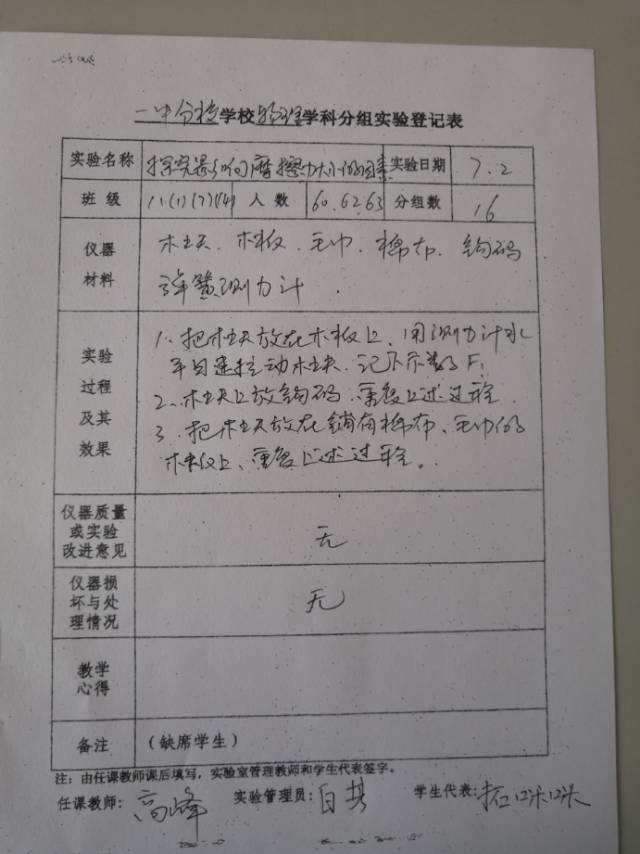 一中分校学校物理学科分组实验登记表
实验名称 探究影响摩擦力大小的因素 实验日期 7.2
班级 人数 60.62.63 分组数 16
仪器材料 木块、木板、毛巾、棉布、钩码
弹簧测力计.
实验过程及其效果 1、把木块放在木板上、用测力计水
平匀速拉动木块、记下示数F1
2、木块上放钩码、重复上述过程
3、把木块放在铺有棉布、毛巾的
木板上、重复上述过程。
仪器质量或实验改进意见 无
仪器损坏与处理情况 无
教学心得
备注 (缺席学生)
注：由任课教师课后填写，实验室管理教师和学生代表签字。
任课教师：高峰 实验管理员：白 学生代表：